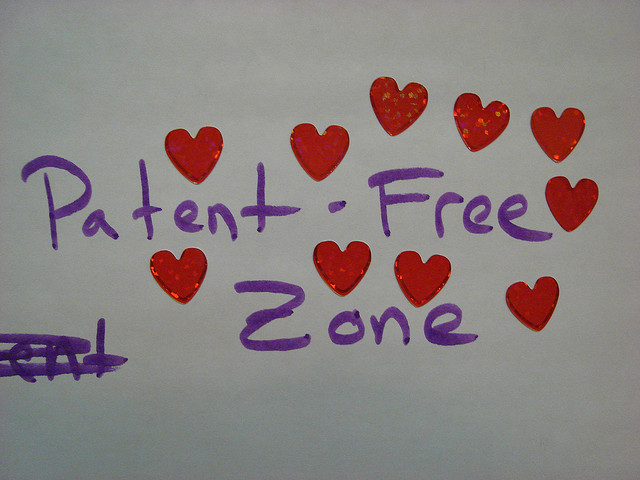 Patent-Free
Zone
ent